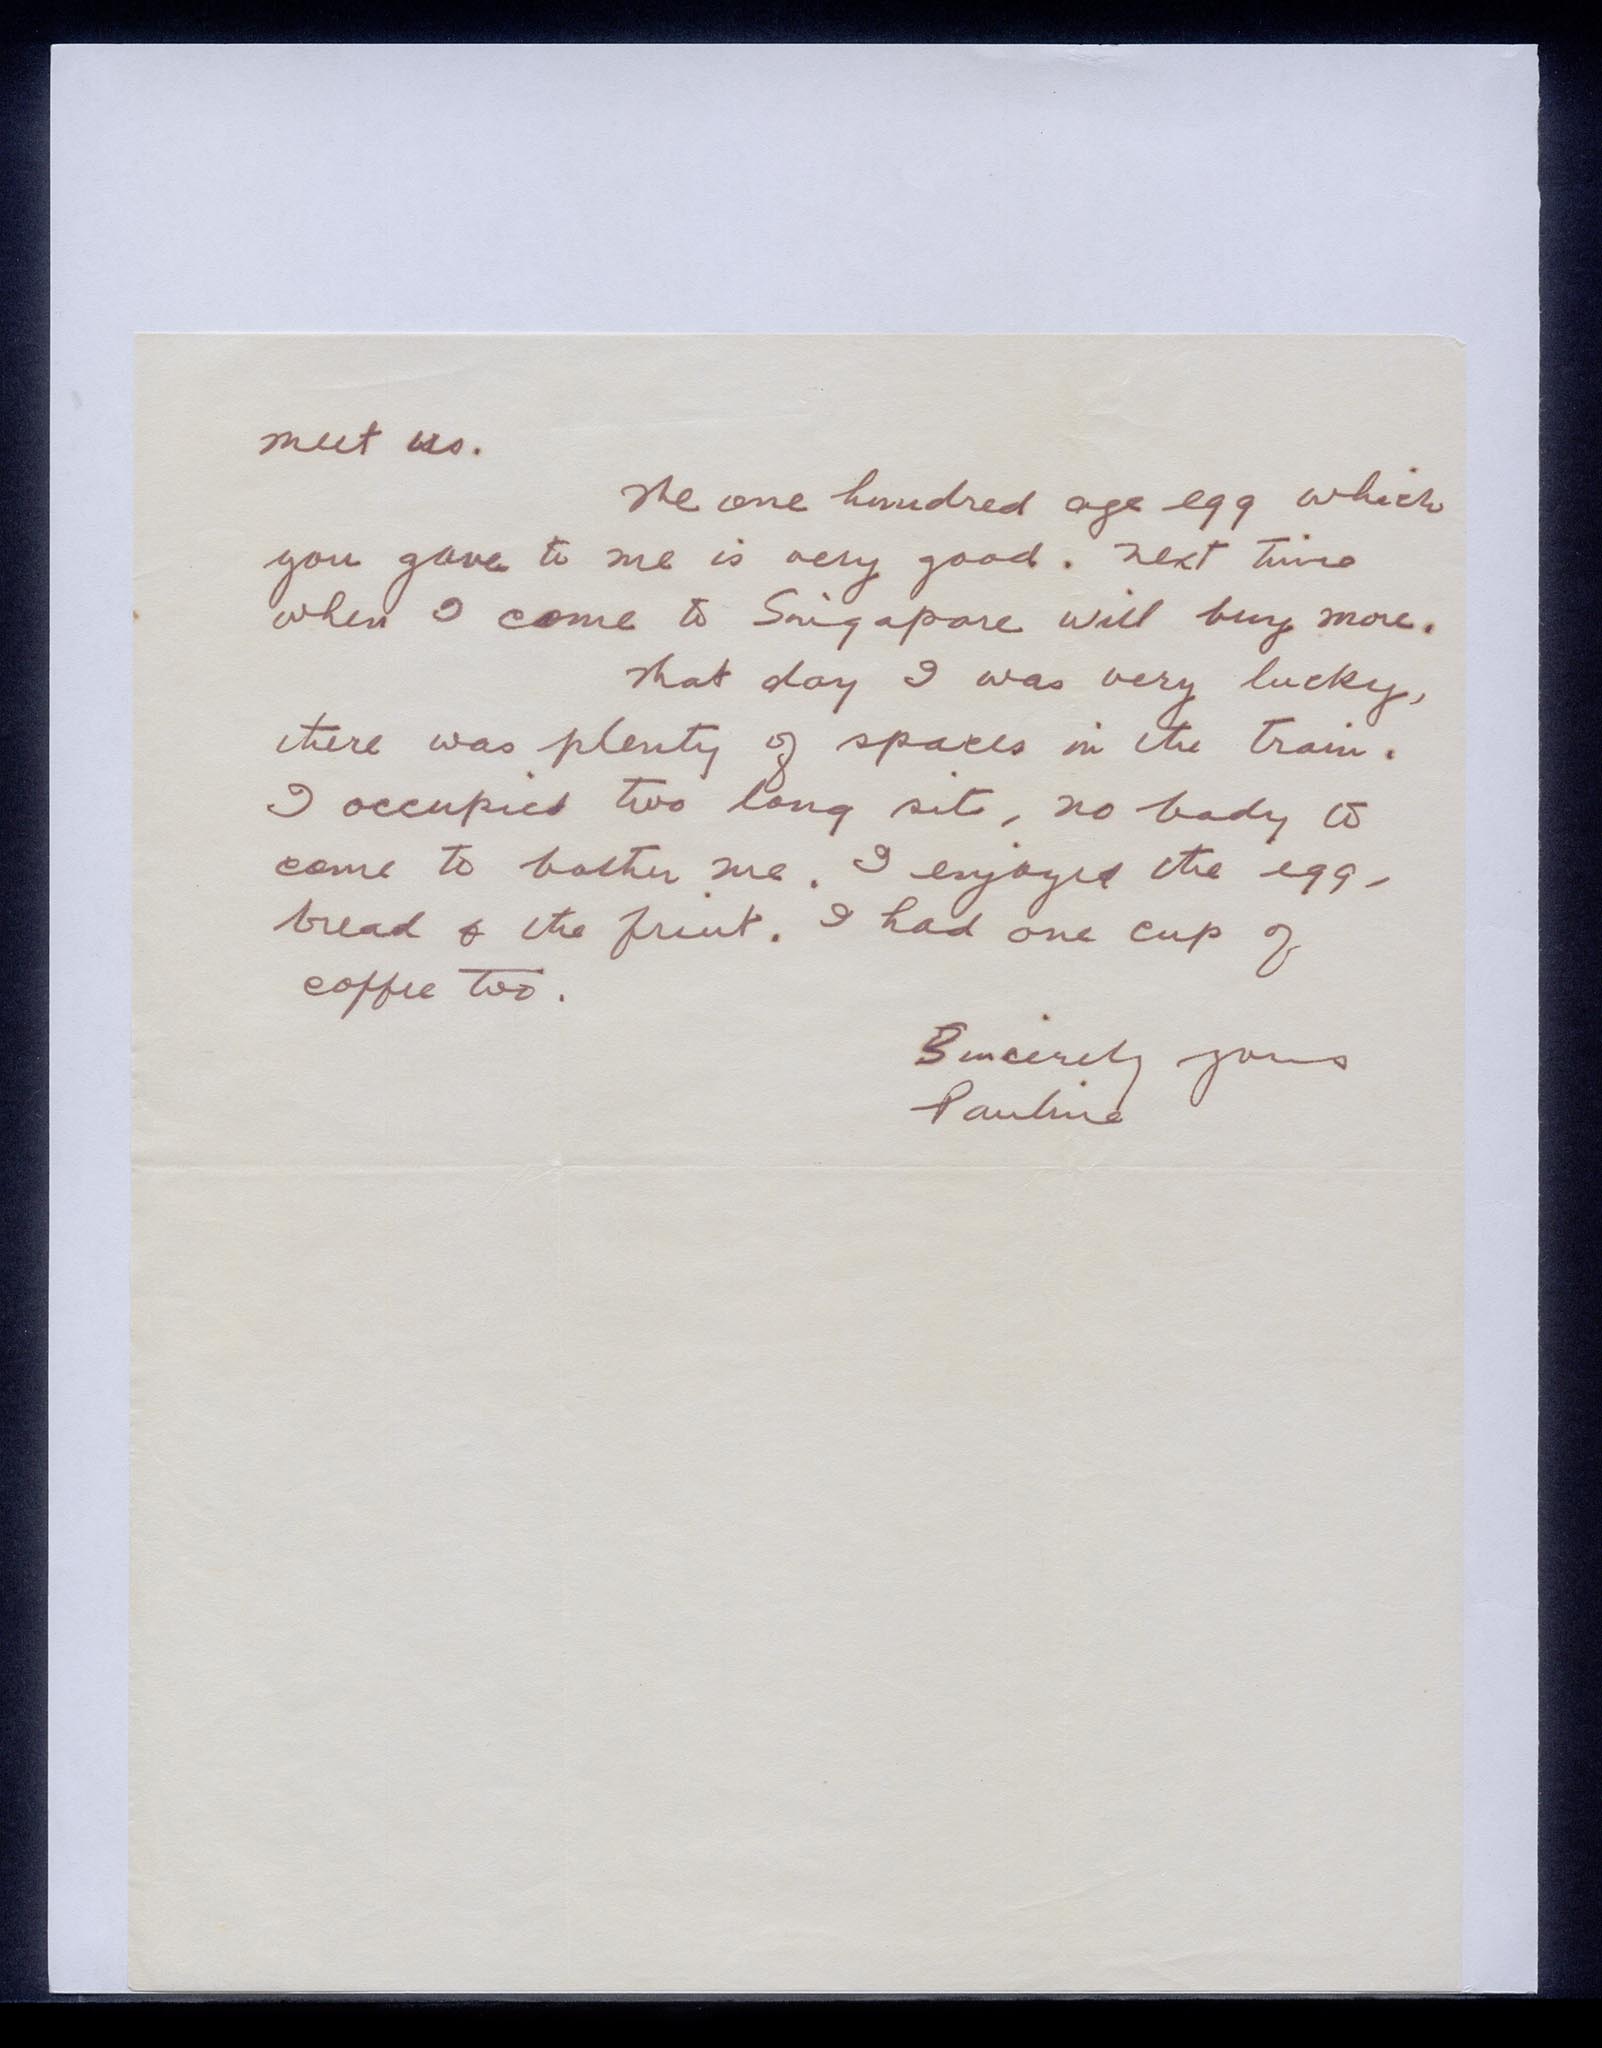 meet us.
The one hundred age egg which
you gave to me is very good. Next time
when I come to Singapore will buy more.
That day I was very lucky,
there was plenty of spaces in the train.
I occupied two long sit, no body to
come to bother me. I enjoyed the egg,
bread & the fruit. I had one cup of
coffee too.
Sincerely yours
Pauline